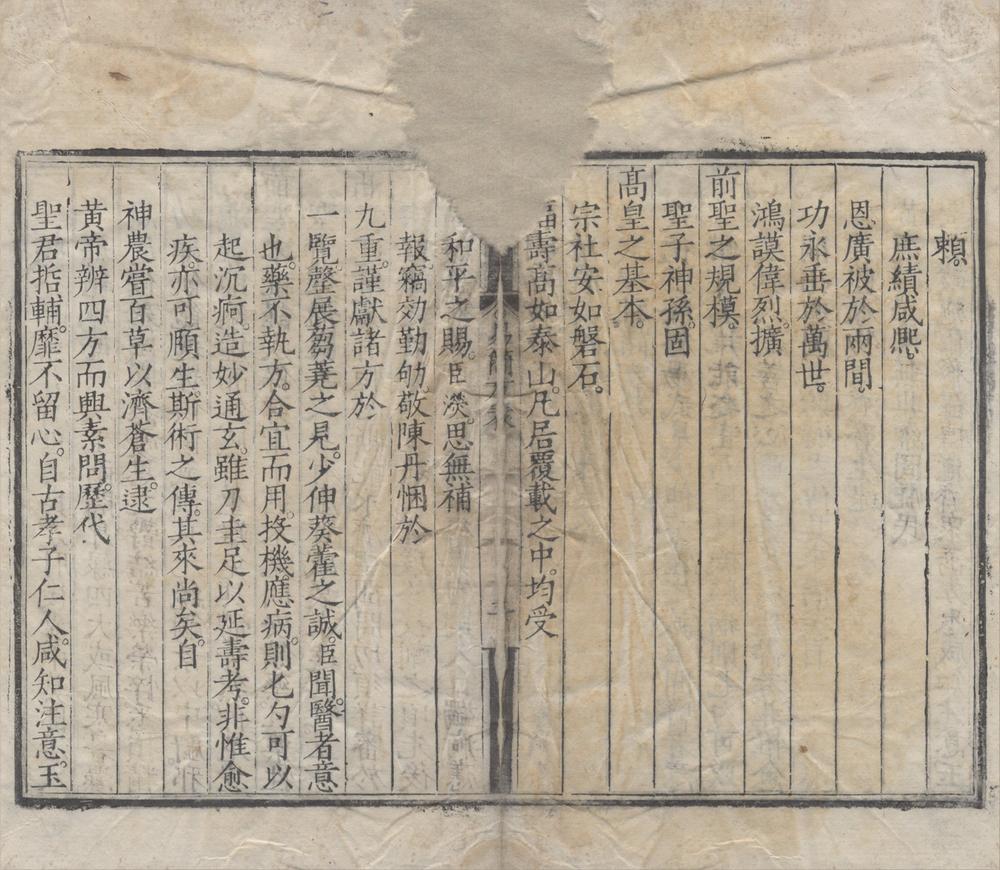 賴。
庶績咸熈。
恩廣被於兩間。
功永垂於萬世。
鴻謨偉烈。擴
前聖之規模。
聖子神孫。固
髙皇之基本。
宗社安如磐石。
福壽髙如泰山。凡居覆載之中。均受
易簡方表
和平之賜。臣 淡。思無補
報。竊効勤劬。敬陳丹悃於
九重。謹獻諸方於
一覽。罄展芻蕘之見。少伸葵藿之誠。臣聞醫者意
也。藥不執方。合宜而用。投機應病。則七勺可以
起沉痾。造妙通玄。雖刀圭足以延壽考。非惟愈
疾。亦可頤生。斯術之傳。其來尚矣。自
神農嘗百草以濟蒼生。逮
黃帝辨四方而興素問。歷代
聖君哲輔。靡不留心。自古孝子仁人。咸知注意。玉